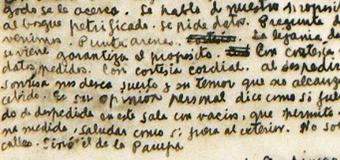 todo se le acerca. Se habla de nuestro proposito
al bosque petrificado. se pide datos. Pregunta d
venimos. Punta arenas. La lejania de
se viene garantiza el proposito. Con cortesia
datos pedidos. Con cortesia cordial. al despedir
sonrisa nos desea suerte y su temor que no alcanz
cebido. Es su opinion personal dice como si fue
do de despedida en este sala con vacios, que permite
me medido, saludar como si fuera al exterior. No so
calle. Sino el de la Pampa